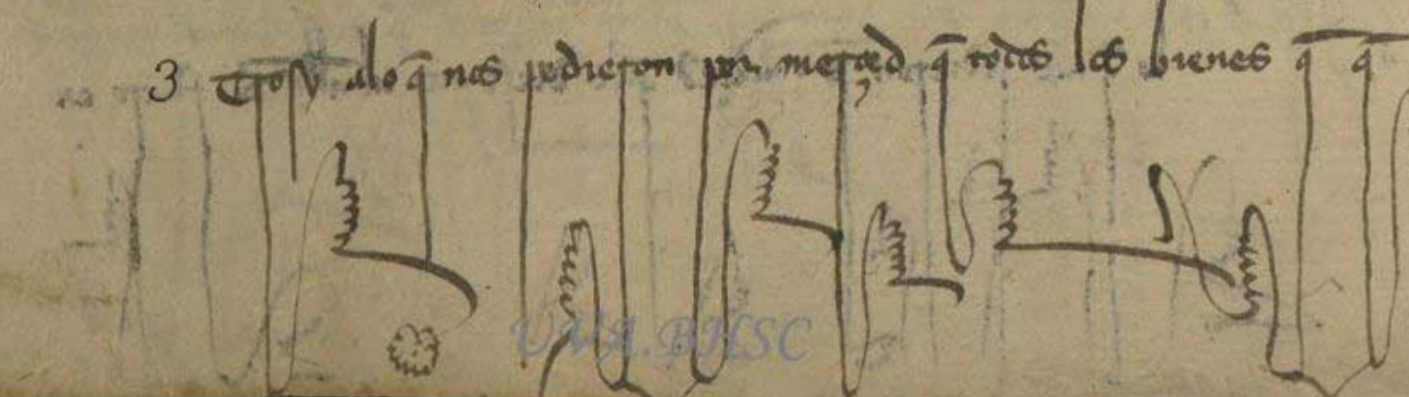 3 Otrosy alo q̄ nos pedieron por merçed q̄ todos los bienes q̄ q̄
UVA.BHSC